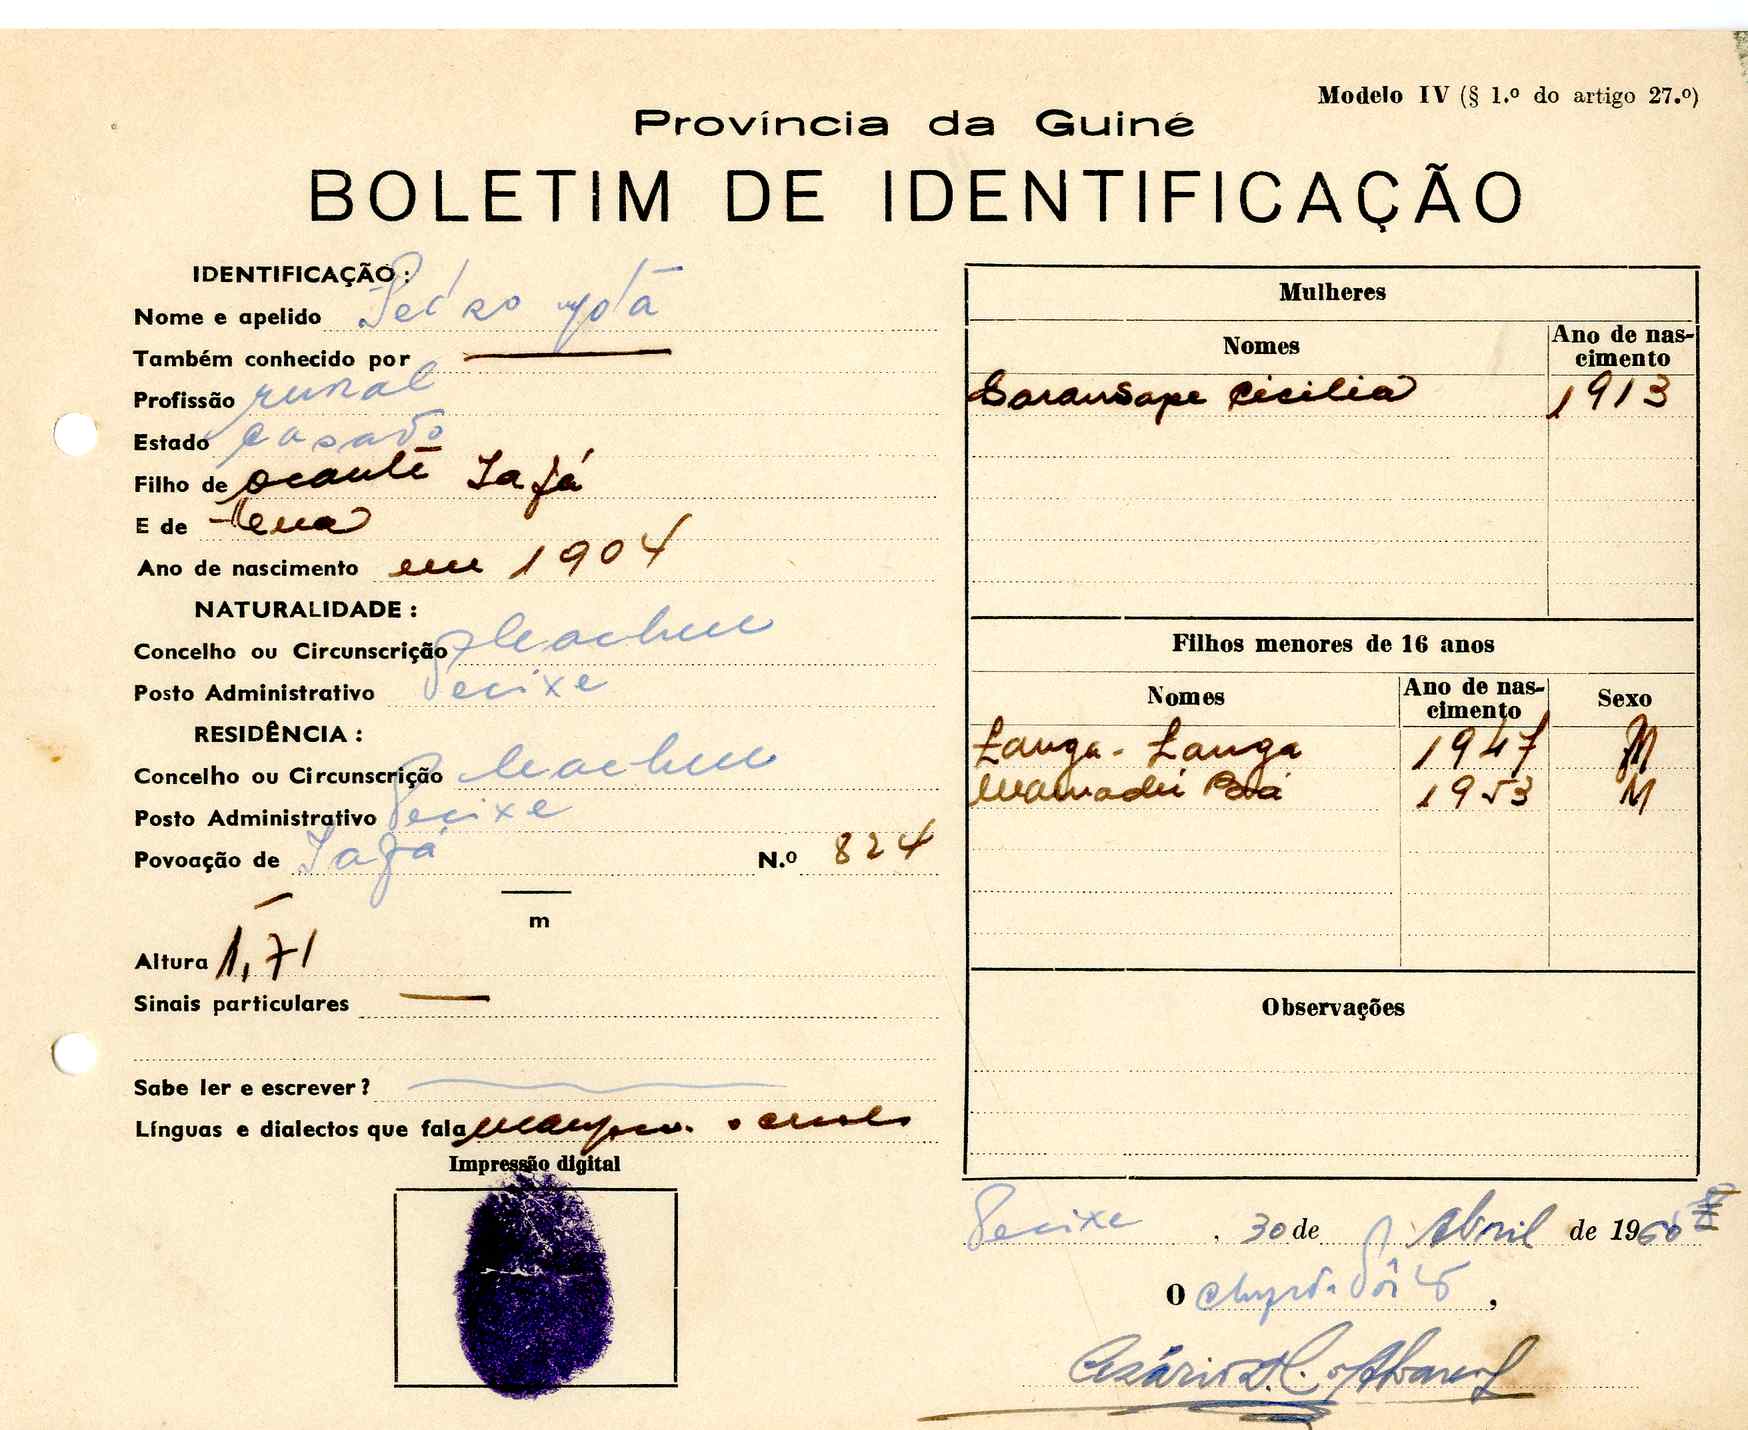 Modelo IV (§ 1.º do artigo 27.º)
Província da Guiné
BOLETIM DE IDENTIFICAÇÃO
IDENTIFICAÇÃO:
Nome e apelido Pedro
Também conhecido por
Profissão rural
Estado casado
Filho de ocante Jafá
E de
Ano de nascimento em 1904
NATURALIDADE:
Concelho ou Circunscrição Cacheu
Posto Administrativo Pecixe
RESIDÊNCIA:
Concelho ou Circunscrição Cacheu
Posto Administrativo Pecixe
Povoação de Jafá N.º 824
m
Altura 1,71
Sinais particulares
Sabe ler e escrever?
Línguas e dialectos que fala
Impressão digital
Mulheres
Nomes Ano de nas-
cimento
Cicilia 1913
Filhos menores de 16 anos
Nomes Ano de nas-
cimento Sexo
Langa-Langa 1947 M
Mamadú Bá 1953 M
Observações
Pecixe, 30 de Abril de 1960
O Chefe do Pôsto,